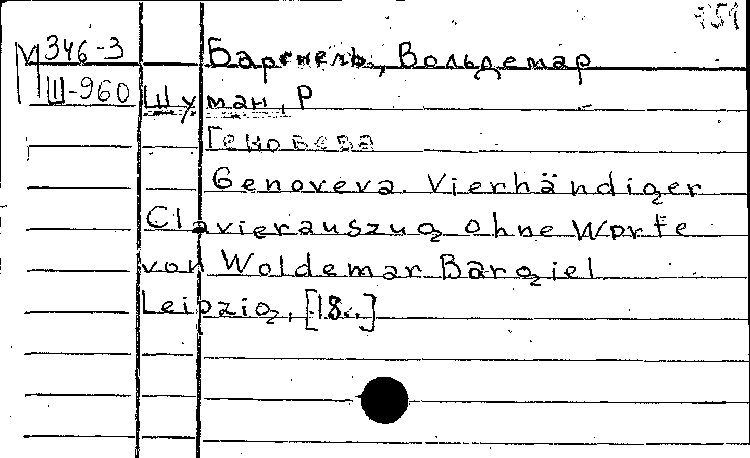 M 346-3 Баргиель, Вольдемар
Ш-960 Шуман, Р
Геновева
Genoveva. Vierhändiger
Clavierauszug ohne Worte
von Woldemar Bargiel
Leipzig, [18..]